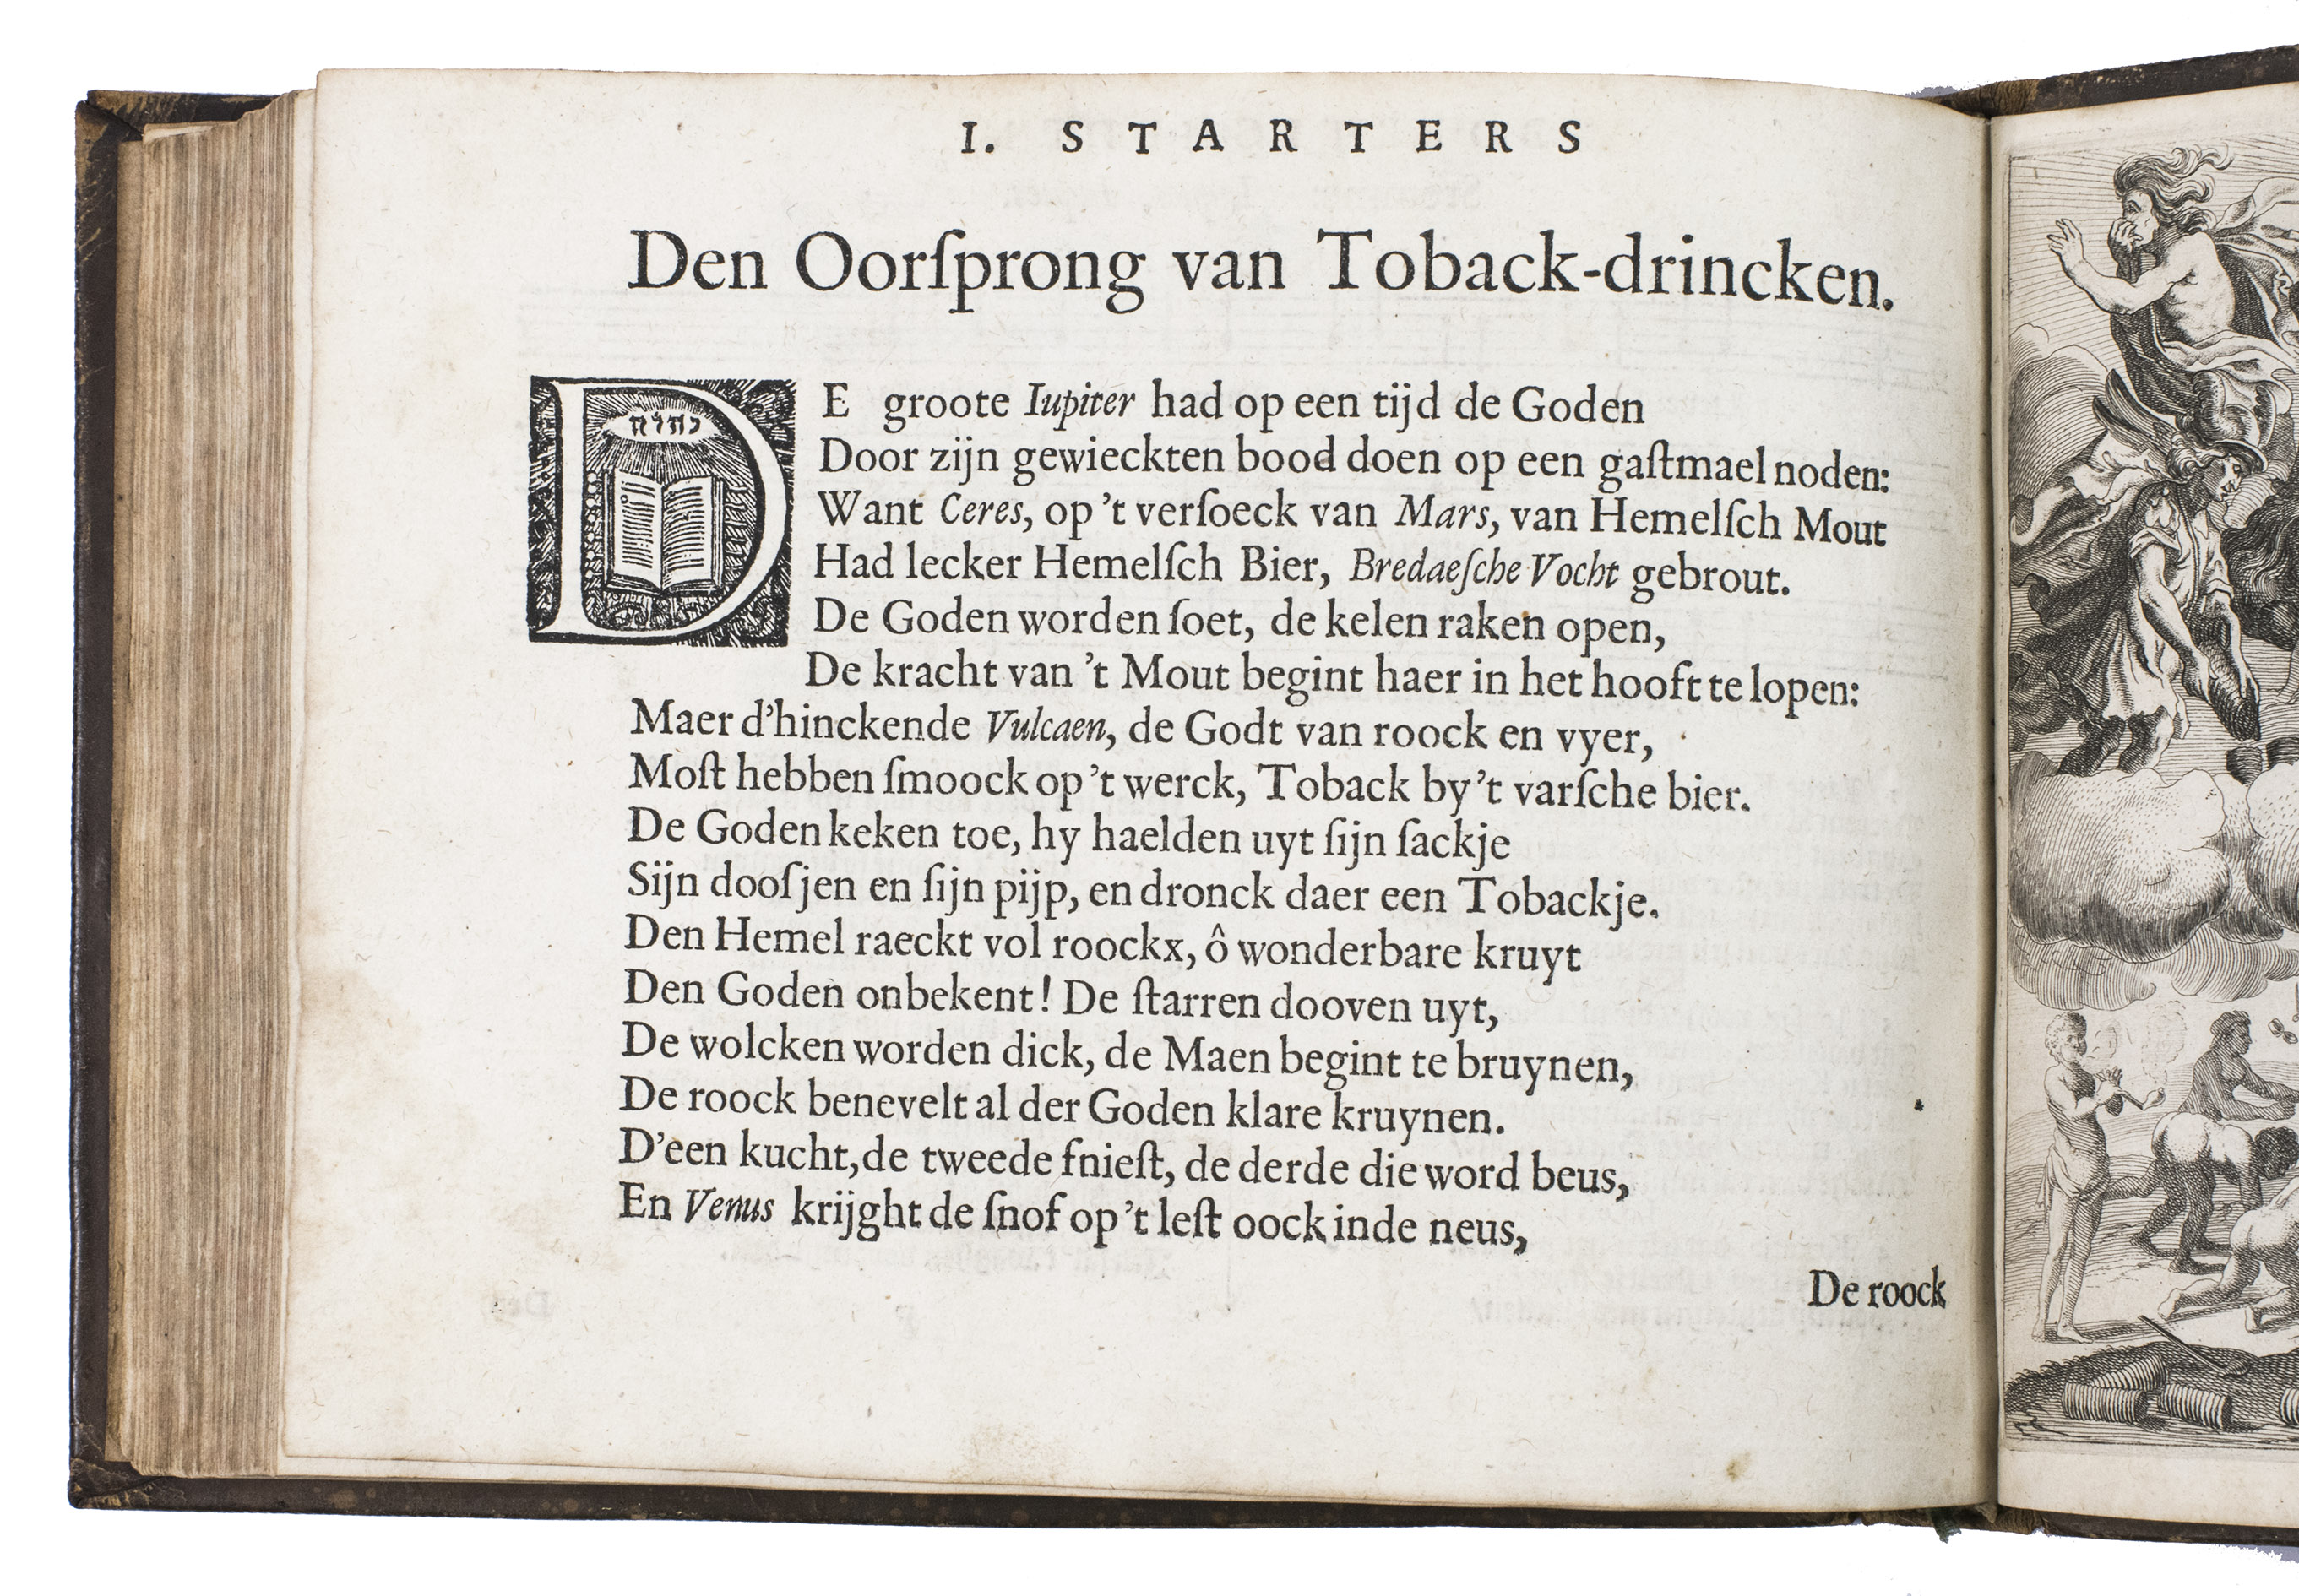 I. STARTERS
Den Oorſprong van Toback-drincken.
DE groote Iupiter had op een tijd de Goden
Door zijn gewieckten bood doen op een gaſtmael noden:
Want Ceres, op 't verſoeck van Mars, van Hemelſch Mout
Had lecker Hemelſch Bier, Bredaeſche Vocht gebrout.
De Goden worden ſoet, de kelen raken open,
De kracht van 't Mout begint haer in het hooft te lopen:
Maer d'hinckende Vulcaen, de Godt van roock en vyer,
Moſt hebben ſmoock op 't werck, Toback by 't varſche bier.
De Goden keken toe, hy haelden uyt ſijn ſackje
Sijn doosjen en ſijn pijp, en dronck daer een Tobackje.
Den Hemel raeckt vol roockx, ô wonderbare kruyt
Den Goden onbekent! De ſtarren dooven uyt,
De wolcken worden dick, de Maen begint te bruynen,
De roock benevelt al der Goden klare kruynen.
D'een kucht, de tweede fnieſt, de derde die word beus,
En Venus krijght de ſnof op 't leſt oock inde neus,
De roock